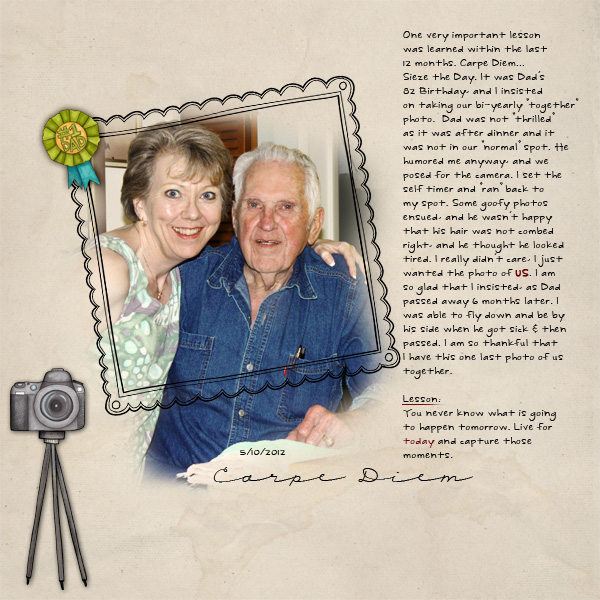 One very important lesson
was learned within the last
12 months. Carpe Diem...
Sieze the Day. It was Dad's
82 Birthday, and I insisted
on taking our bi-yearly "together"
photo. Dad was not "thrilled"
as it was after dinner and it
was not in our "normal" spot. He
humored me anyway, and we
posed for the camera. I set the
self timer and "ran" back to
my spot. Some goofy photos
ensued, and he wasn't happy
that his hair was not combed
right, and he thought he looked
tired. I really didn't care, I just
wanted the photo of US. I am
so glad that I insisted, as Dad
passed away 6 months later. I
was able to fly down and be by
his side when he got sick & then
passed. I am so thankful that
I have this one last photo of us
together.
Lesson:
You never know what is going
to happen tomorrow. Live for
today and capture those
moments.
#1
DAD
5/10/2012
Carpe Diem